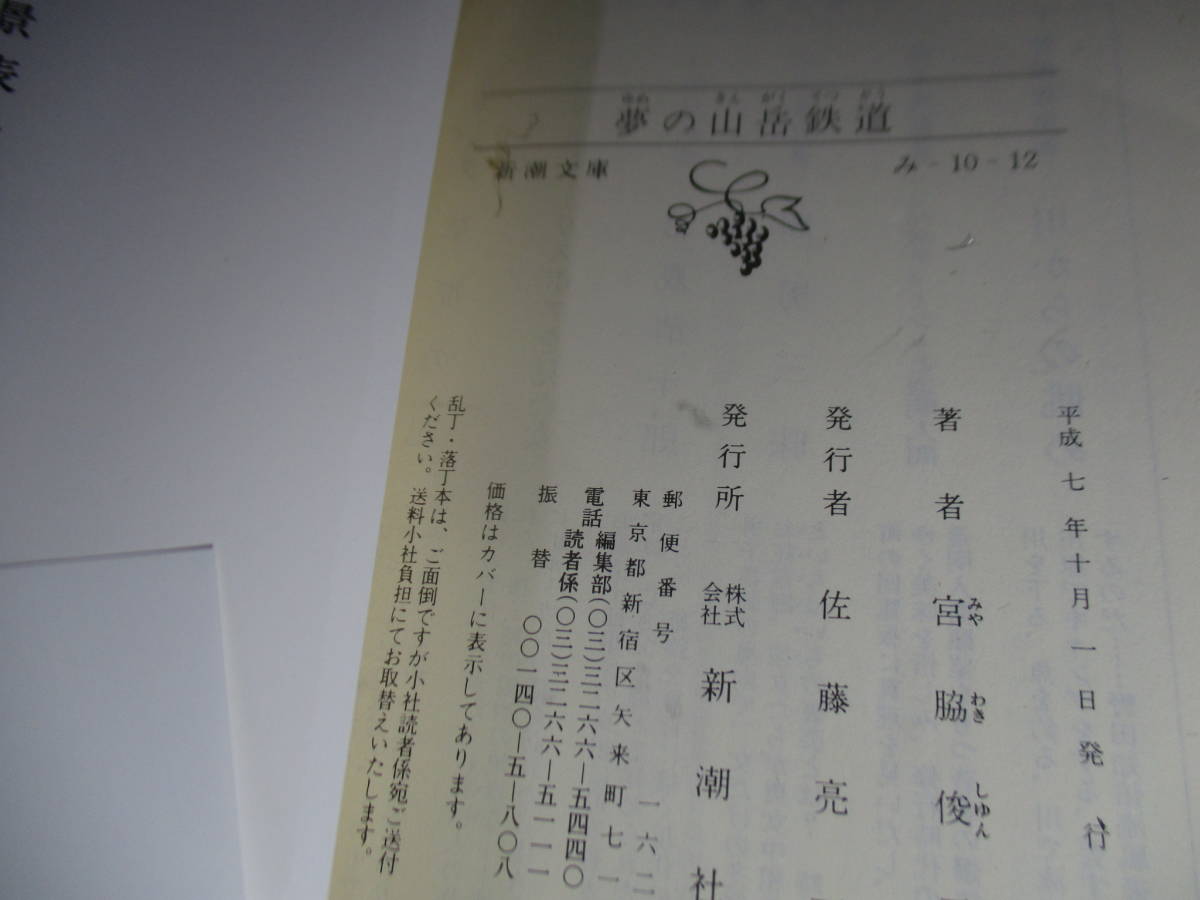 夢の山岳鉄道
新潮文庫
み-10-12
平成七年十月一日発行
著者 宮脇俊
発行者 佐藤亮
発行所 株式会社 新潮社
郵便番号 一六二
東京都新宿区矢来町七一
電話 編集部(〇三)三二六六―五四四〇
読者係(〇三)三二六六―五一一一
振替 〇〇一四〇―五―八〇八
価格はカバーに表示してあります。
乱丁・落丁本は、ご面倒ですが小社読者係宛ご送付
ください。送料小社負担にてお取替えいたします。